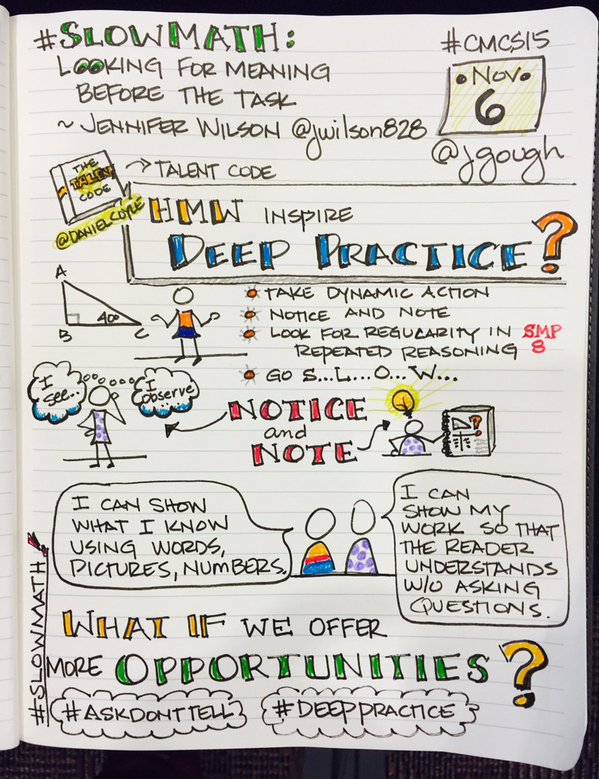 #SLOWMATH:
LOOKING FOR MEANING
BEFORE THE TASK
~ JENNIFER WILSON @jwilson828
#CMCS15
NOV.
6
@jgough
THE
TALENT
CODE
→ TALENT CODE
@DANIELCOYLE
HMW INSPIRE
DEEP PRACTICE?
A
B
40°
C
TAKE DYNAMIC ACTION
NOTICE AND NOTE
LOOK FOR REGULARITY IN
REPEATED REASONING
SMP
8
GO S...L...O...W...
I
SEE...
I
OBSERVE
NOTICE
and
NOTE
I CAN SHOW
WHAT I KNOW
USING WORDS,
PICTURES, NUMBERS
I CAN
SHOW MY
WORK SO THAT
THE READER
UNDERSTANDS
W/O ASKING
QUESTIONS.
#SLOWMATH
WHAT IF WE OFFER
MORE OPPORTUNITIES?
#ASKDONTTELL
#DEEPPRACTICE